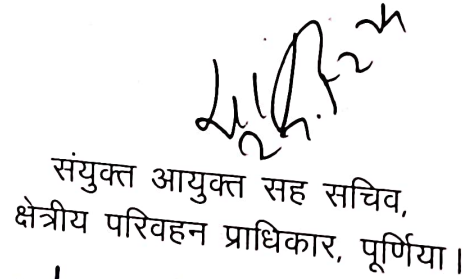 संयुक्त आयुक्त सह सचिव,
क्षेत्रीय परिवहन प्राधिकार, पूर्णिया।